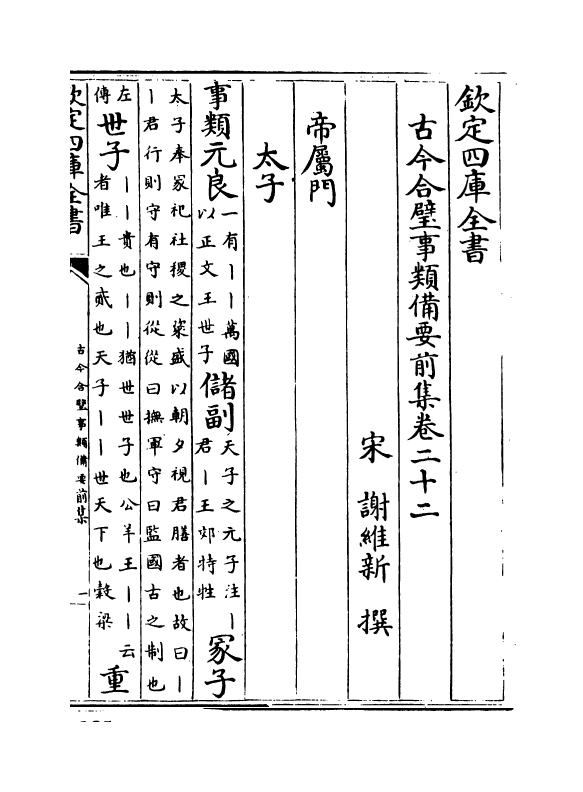 欽定四庫全書
古今合璧事類備要前集卷二十二
宋　謝維新　撰
帝屬門
太子
事類元良一有丨丨萬國以正文王世子儲副天子之元子注丨君丨王郊特牲冢子
太子奉冢祀社稷之粢盛以朝夕視君膳者也故曰丨丨君行則守有守則從從曰撫軍守曰監國古之制也
左傳世子丨丨貴也丨丨猶世世子也公羊王丨丨云者唯王之貳也天子丨丨世天下也穀梁重
欽定四庫全書
古今合璧事類備要前集
一